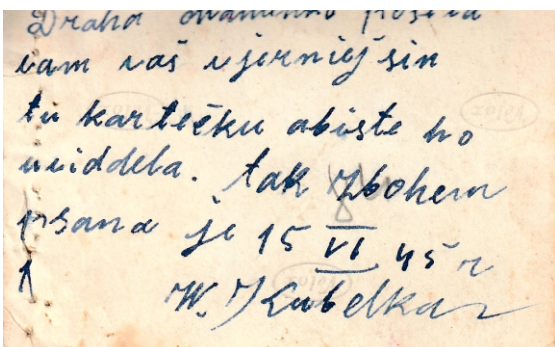 Draha
vam vaš vjerniej sin
tu kartečku abiste ho
uviddela. tak Zbohem
psana je 15 VI 45 r
W. Kubelka